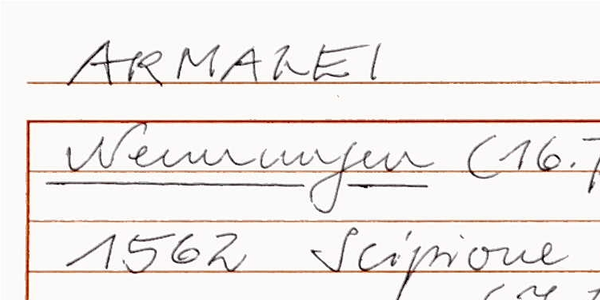 ARMALEI
Nennungen (16.
1562 Scipione